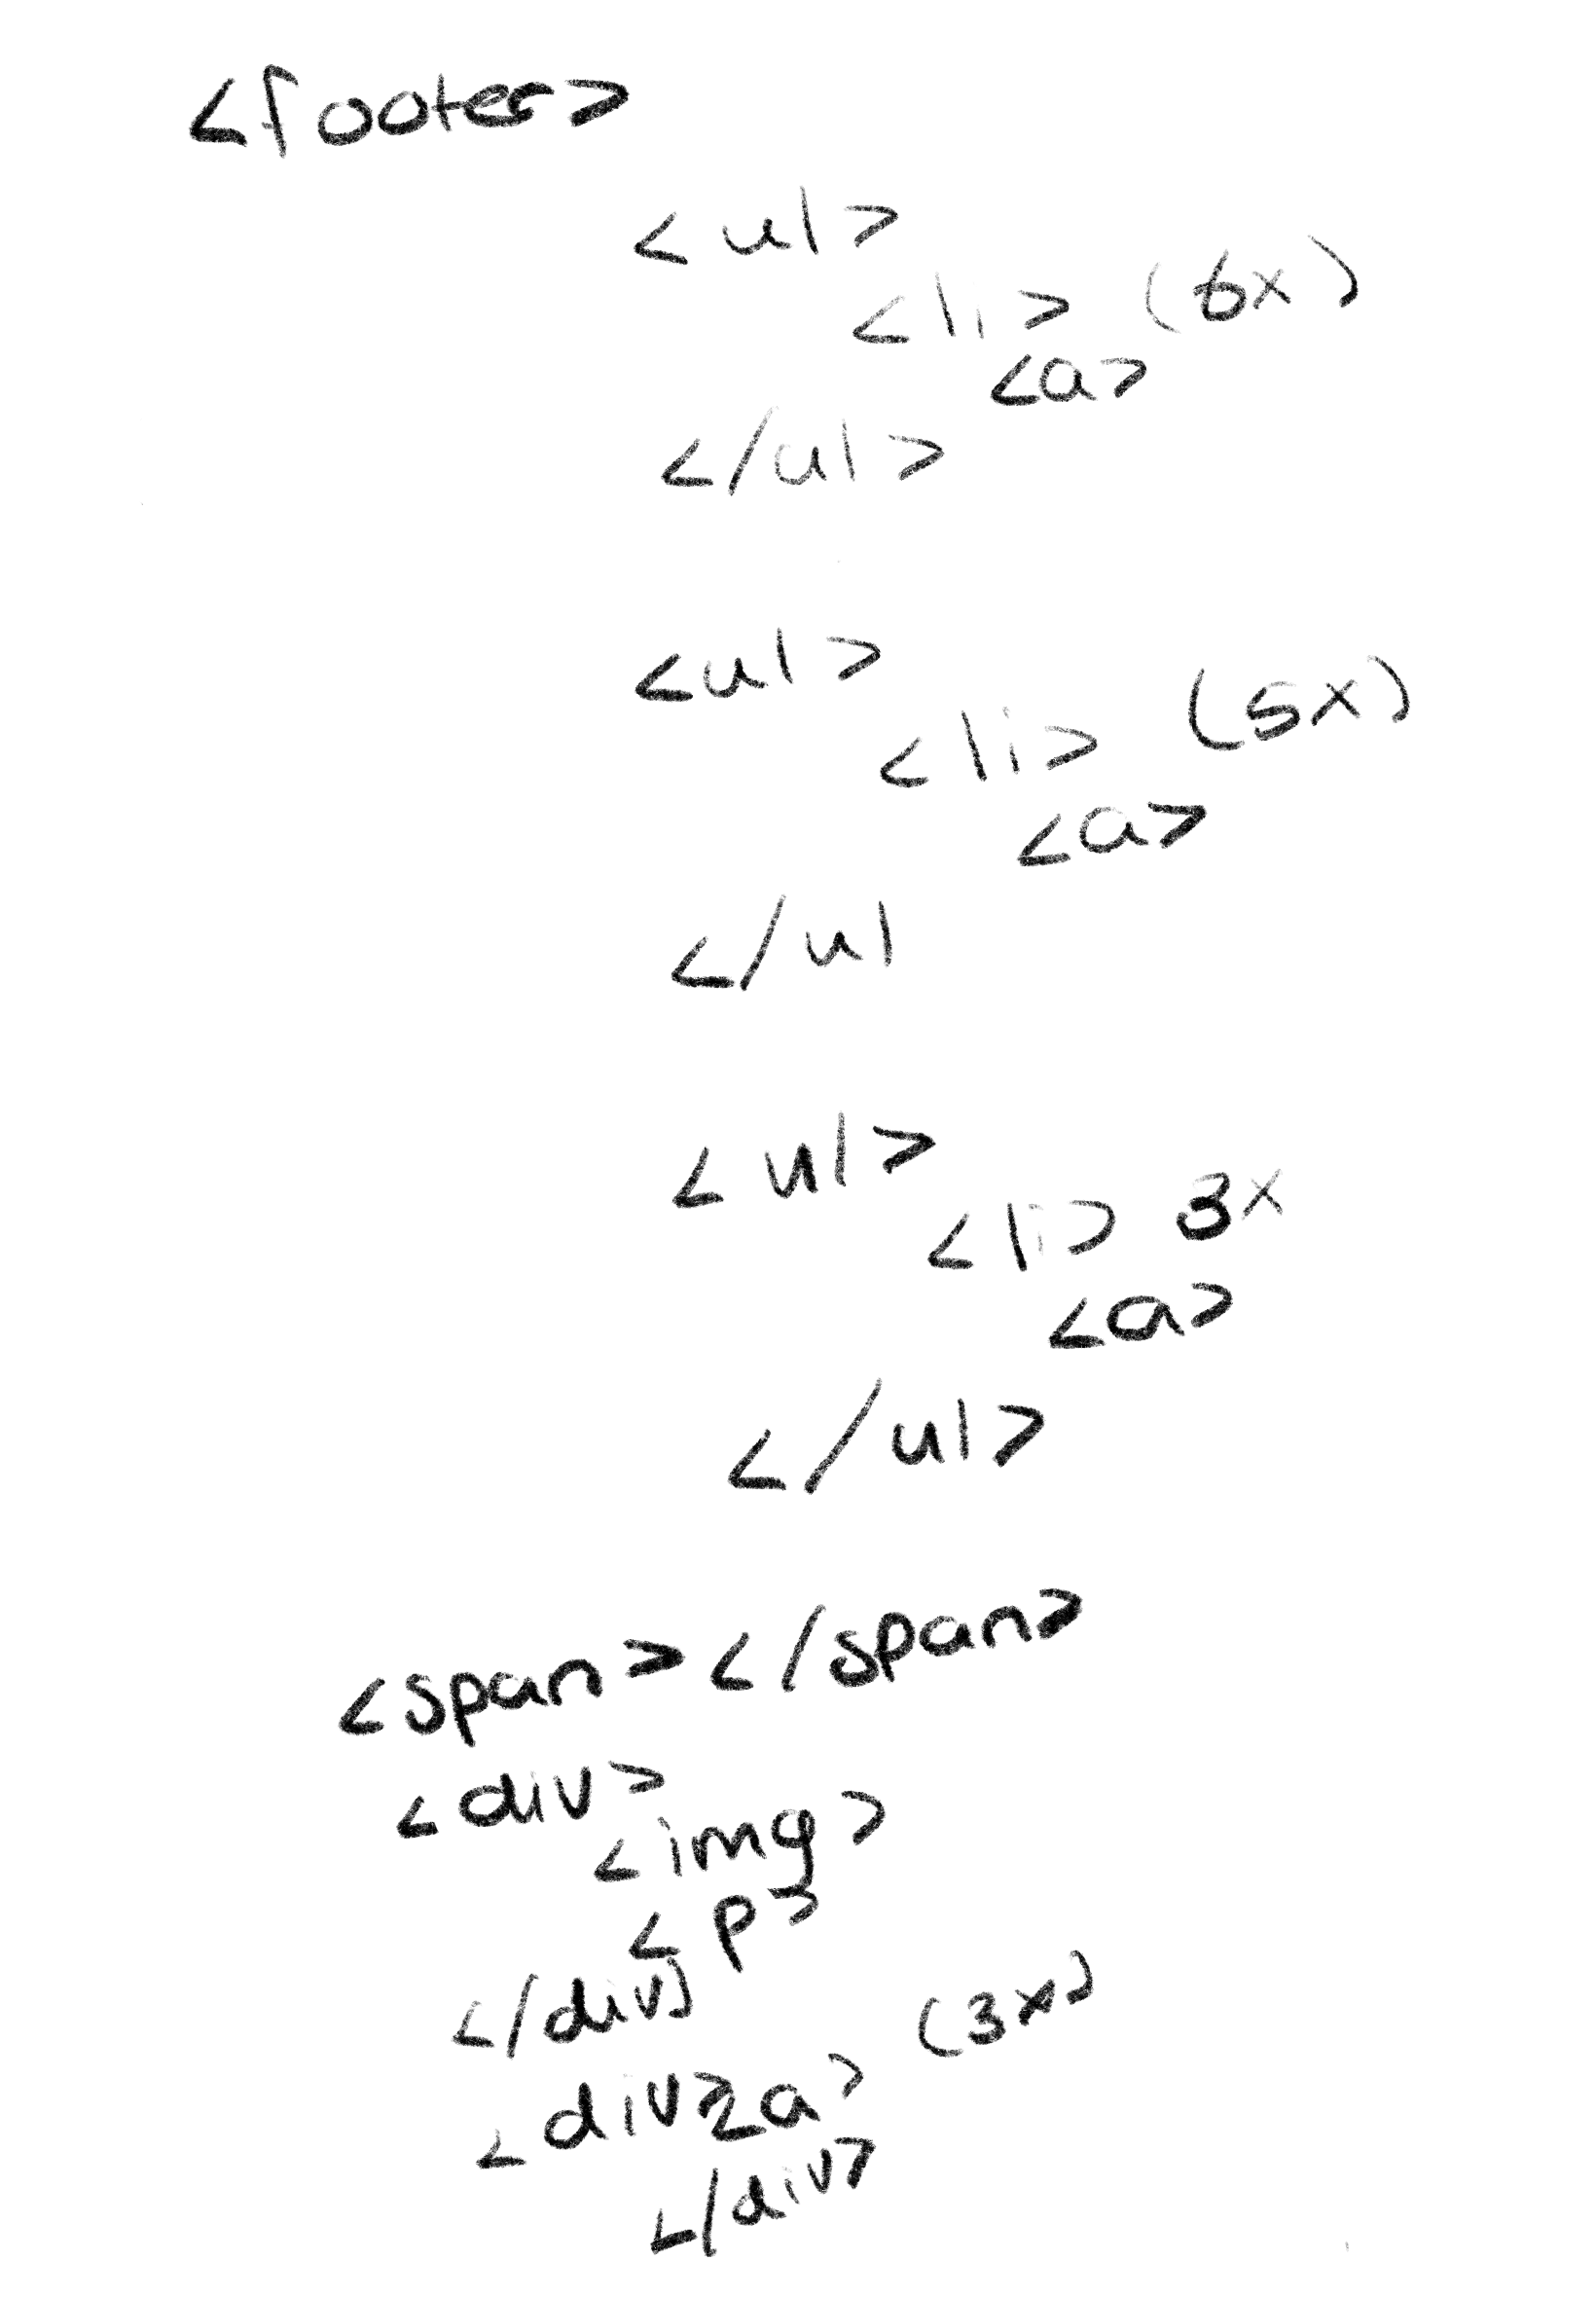 <footer>
<ul>
<li> (6x)
<a>
</ul>
<ul>
<li> (5x)
<a>
</ul
<ul>
<li> 3x
<a>
</ul>
<span></span>
<div>
<img>
<p>
</div>
<div><a> (3x)
</div>